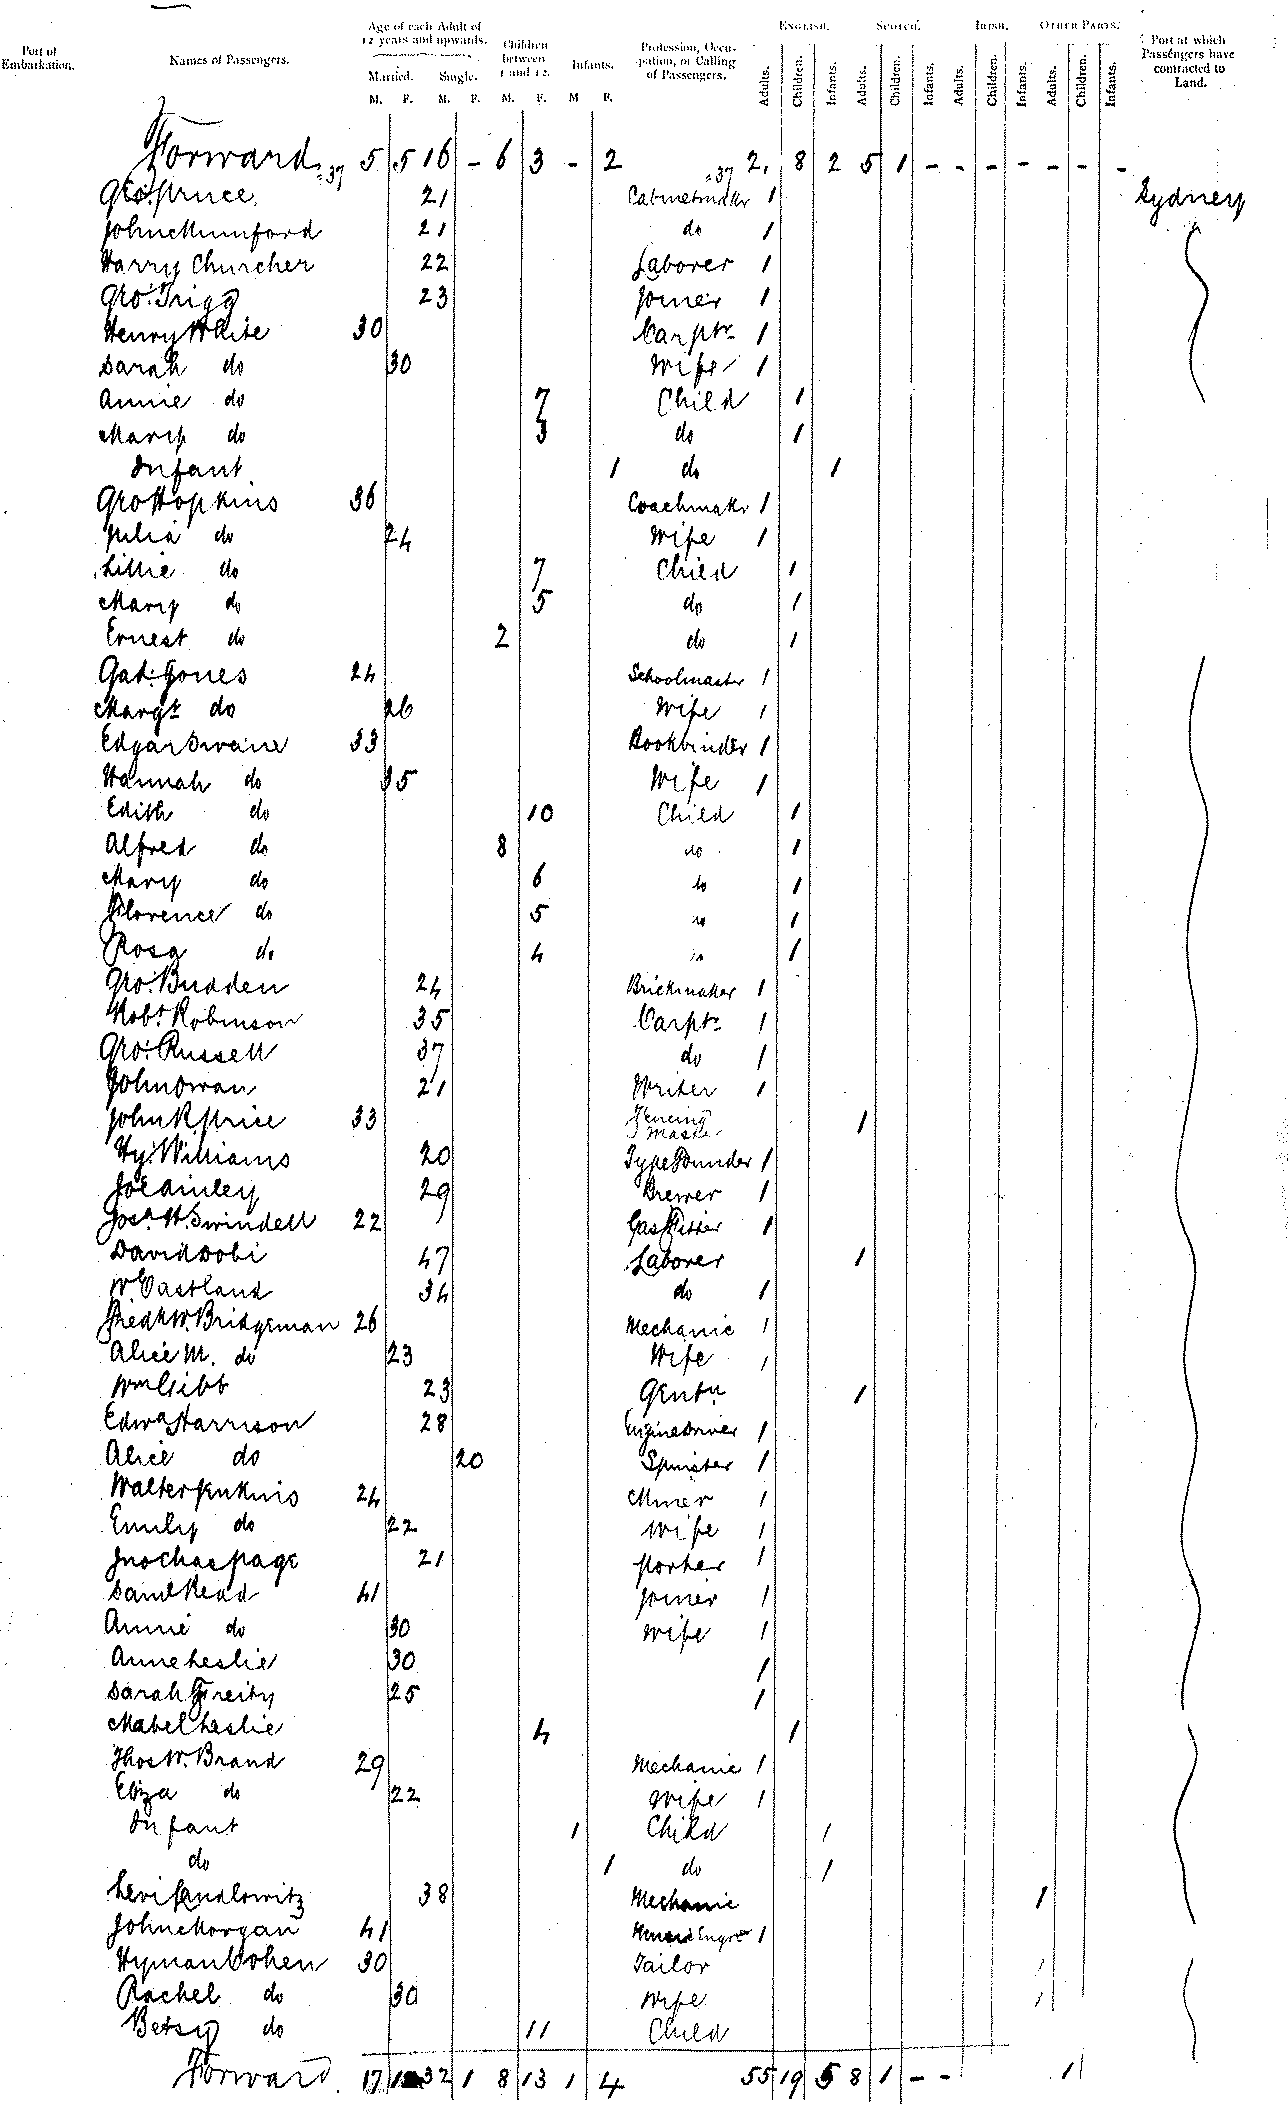 Port of Embarkation. Names of Passengers. Age of each Adult of 12 years and upwards. Children between 1 and 12. Infants. Profession, Occupation, or Calling of Passengers. English. Scotch. Irish. Other Parts. Port at which Passengers have contracted to Land.
Married. Single.
M. F. M. F. M. F. M F. Adults. Children. Infants. Adults. Children. Infants. Adults. Children. Infants. Adults. Children. Infants.
Forward =37 5 5 16 - 6 3 - 2 =37 2, 8 2 5 1 - - - - - - -
Geo. Spruce. 21 Cabinetmakr 1 Sydney
John Mumford 21 do 1
Harry Churcher 22 Laborer 1
Geo. Trigg 23 Joiner 1
Henry White 30 Carptr 1
Sarah do 30 Wife 1
Annie do 7 Child 1
Mary do 3 do 1
Infant 1 do 1
Geo Hopkins 36 Coachmakr 1
Julia do 24 Wife 1
Lillie do 7 Child 1
Mary do 5 do 1
Ernest do 2 do 1
Gad. Jones 24 Schoolmaster 1
Margt do 26 Wife 1
Edgar Swaine 33 Bookbinder 1
Hannah do 35 Wife 1
Edith do 10 Child 1
Alfred do 8 do 1
Mary do 6 do 1
Florence do 5 do 1
Rosa do 4 do 1
Geo. Budden 24 Brickmaker 1
Robt Robinson 35 Carptr 1
Geo. Russell 37 do 1
John Owan 21 Writer 1
John R Price 33 Fencing Master 1
Hy. Williams 20 Type Founder 1
29 Brewer 1
Josh. H. Swindell 22 Gas Fitter 1
David Dobi 47 Laborer 1
W Eastland 34 do 1
Fredk W. Bridgeman 26 Mechanic 1
Alice M. do 23 Wife 1
Wm Gibb 23 Gentn 1
Edwd Harrison 28 Enginedriver 1
Alice do 20 Spinster 1
Walter Jenkins 24 Miner 1
Emily do 22 Wife 1
Jno Chas Page 21 Porter 1
Saml Read 41 Joiner 1
Annie do 30 Wife 1
Anne Leslie 30 1
Sarah 25 1
Mabel Leslie 4 1
Thos W. Brand 29 Mechanic 1
Eliza do 22 Wife 1
Infant 1 Child 1
do 1 do 1
Levi 38 Mechanic 1
John Morgan 41 1
Hyman Cohen 30 Tailor 1
Rachel do 30 Wife 1
Betsy do 11 Child
Forward. 17 32 1 8 13 1 4 55 19 5 8 1 - - 1